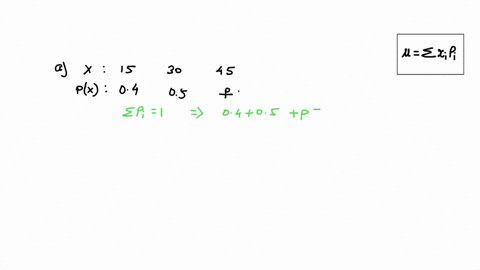 μ = Σ xᵢ Pᵢ
a) X : 15 30 45
P(x) : 0.4 0.5 p .
Σ Pᵢ = 1 => 0.4 + 0.5 + p -